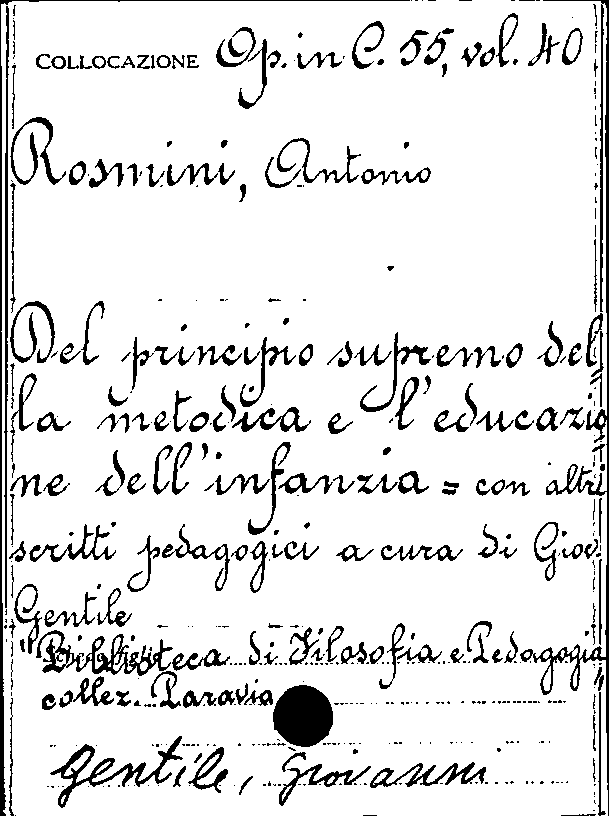 COLLOCAZIONE Op. in C. 55, vol. 40
Rosmini, Antonio
Del principio supremo del=
la metodica e l'educazio=
ne dell'infanzia = con altri
scritti pedagogici a cura di Giov.
Gentile
"Biblioteca di Filosofia e Pedagogia"
collez. Paravia
Gentile, Giovanni